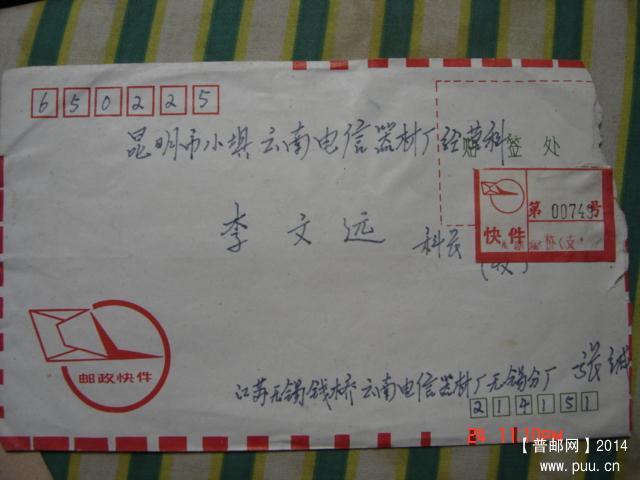 650225
昆明市小坝云南电信器材厂经营科
签处
第00749号
快件
李文远 科长(收)
邮政快件
江苏无锡钱桥云南电信器材厂无锡分厂 张
214151
【普邮网】2014
www.puu.cn